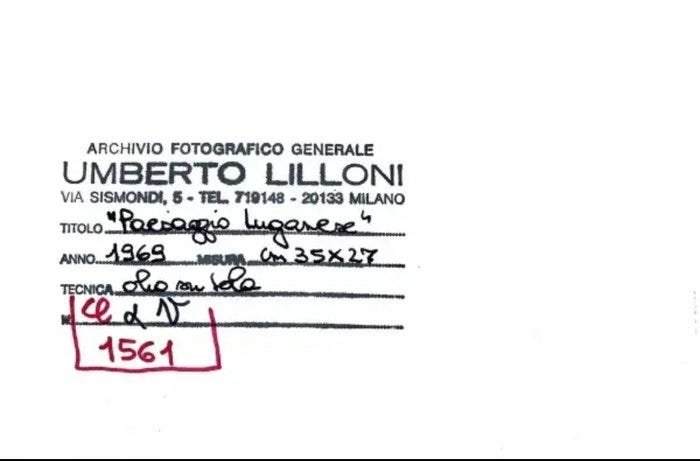 ARCHIVIO FOTOGRAFICO GENERALE
UMBERTO LILLONI
VIA SISMONDI, 5 - TEL. 719148 - 20133 MILANO
TITOLO "Paesaggio Luganese"
ANNO 1969 MISURA cm 35x27
TECNICA olio su tela
N.
1561